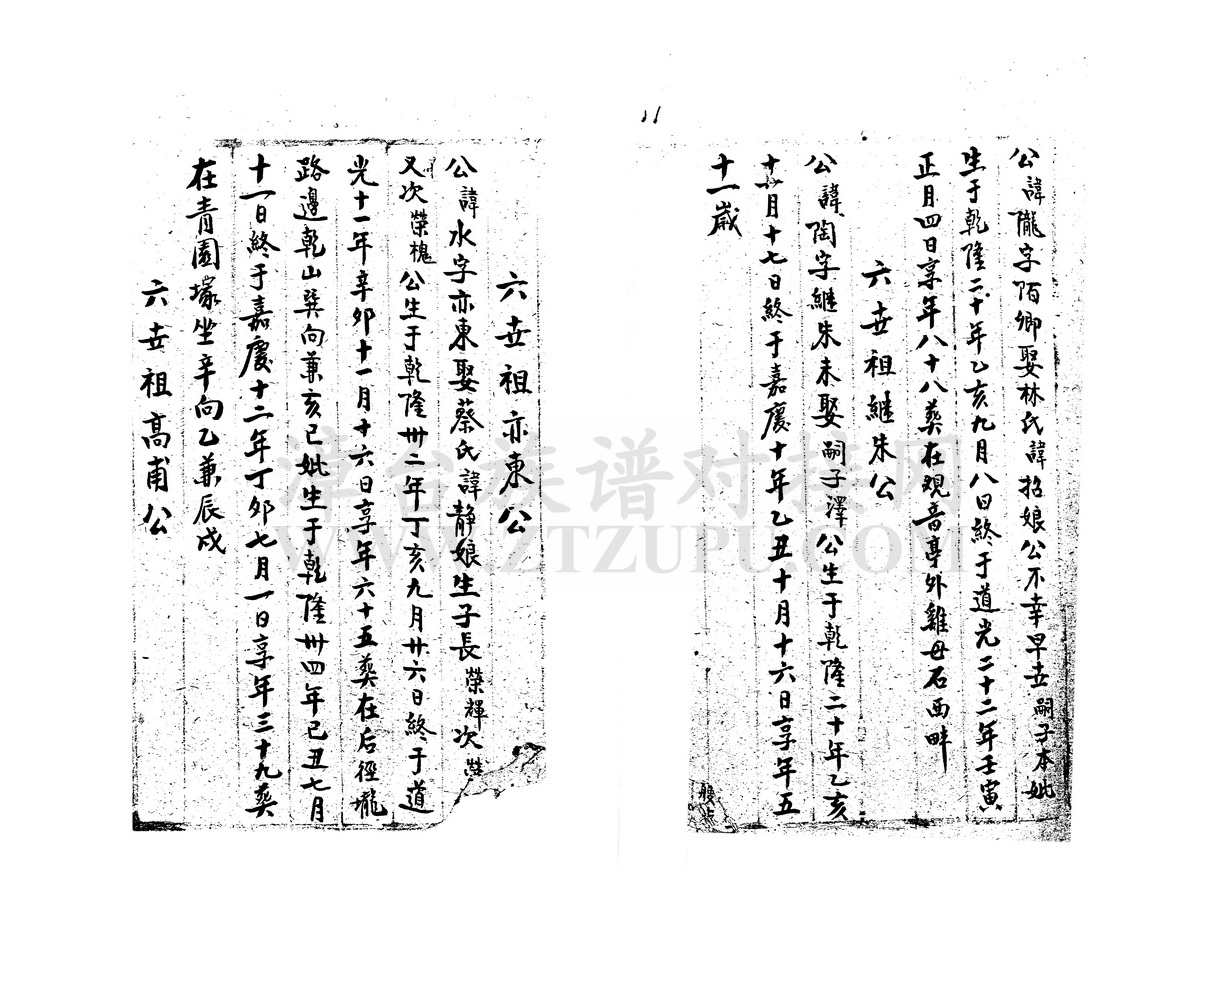 公諱隴字陌卿娶林氏諱招娘公不幸早世嗣子本妣
生于乾隆二十年乙亥九月八日終于道光二十二年壬寅
正月四日享年八十八葬在观音亭外雞母石西畔
六世祖継朱公
公諱陶字継朱未娶嗣子澤公生于乾隆二十年乙亥
月十七日終于嘉慶十年乙丑十月十六日享年五
十一歲
六世祖亦東公
公諱水字亦東娶蔡氏諱静娘生子長榮輝次
又次榮槐公生于乾隆卅二年丁亥九月廿六日終于道
光十一年辛卯十一月十六日享年六十五葬在后徑壠
路邊乾山巽向兼亥巳妣生于乾隆卅四年己丑七月
十一日終于嘉慶十二年丁卯七月一日享年三十九葬
在青園塚坐辛向乙兼辰戍
六世祖高甫公
漳台族谱对接网
WWW.ZTZUPU.COM